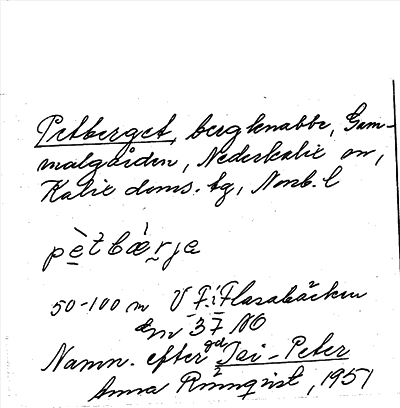 Petberget, bergknabbe, Gam-
malgården, Nederkalix sn,
Kalix doms. tg, Norrb. l
pètbǽrjə
50-100 m V F.i. Flasabäcken
37 NO
Namn. efter Jai-Peter
Anna Rönnqvist, 1951